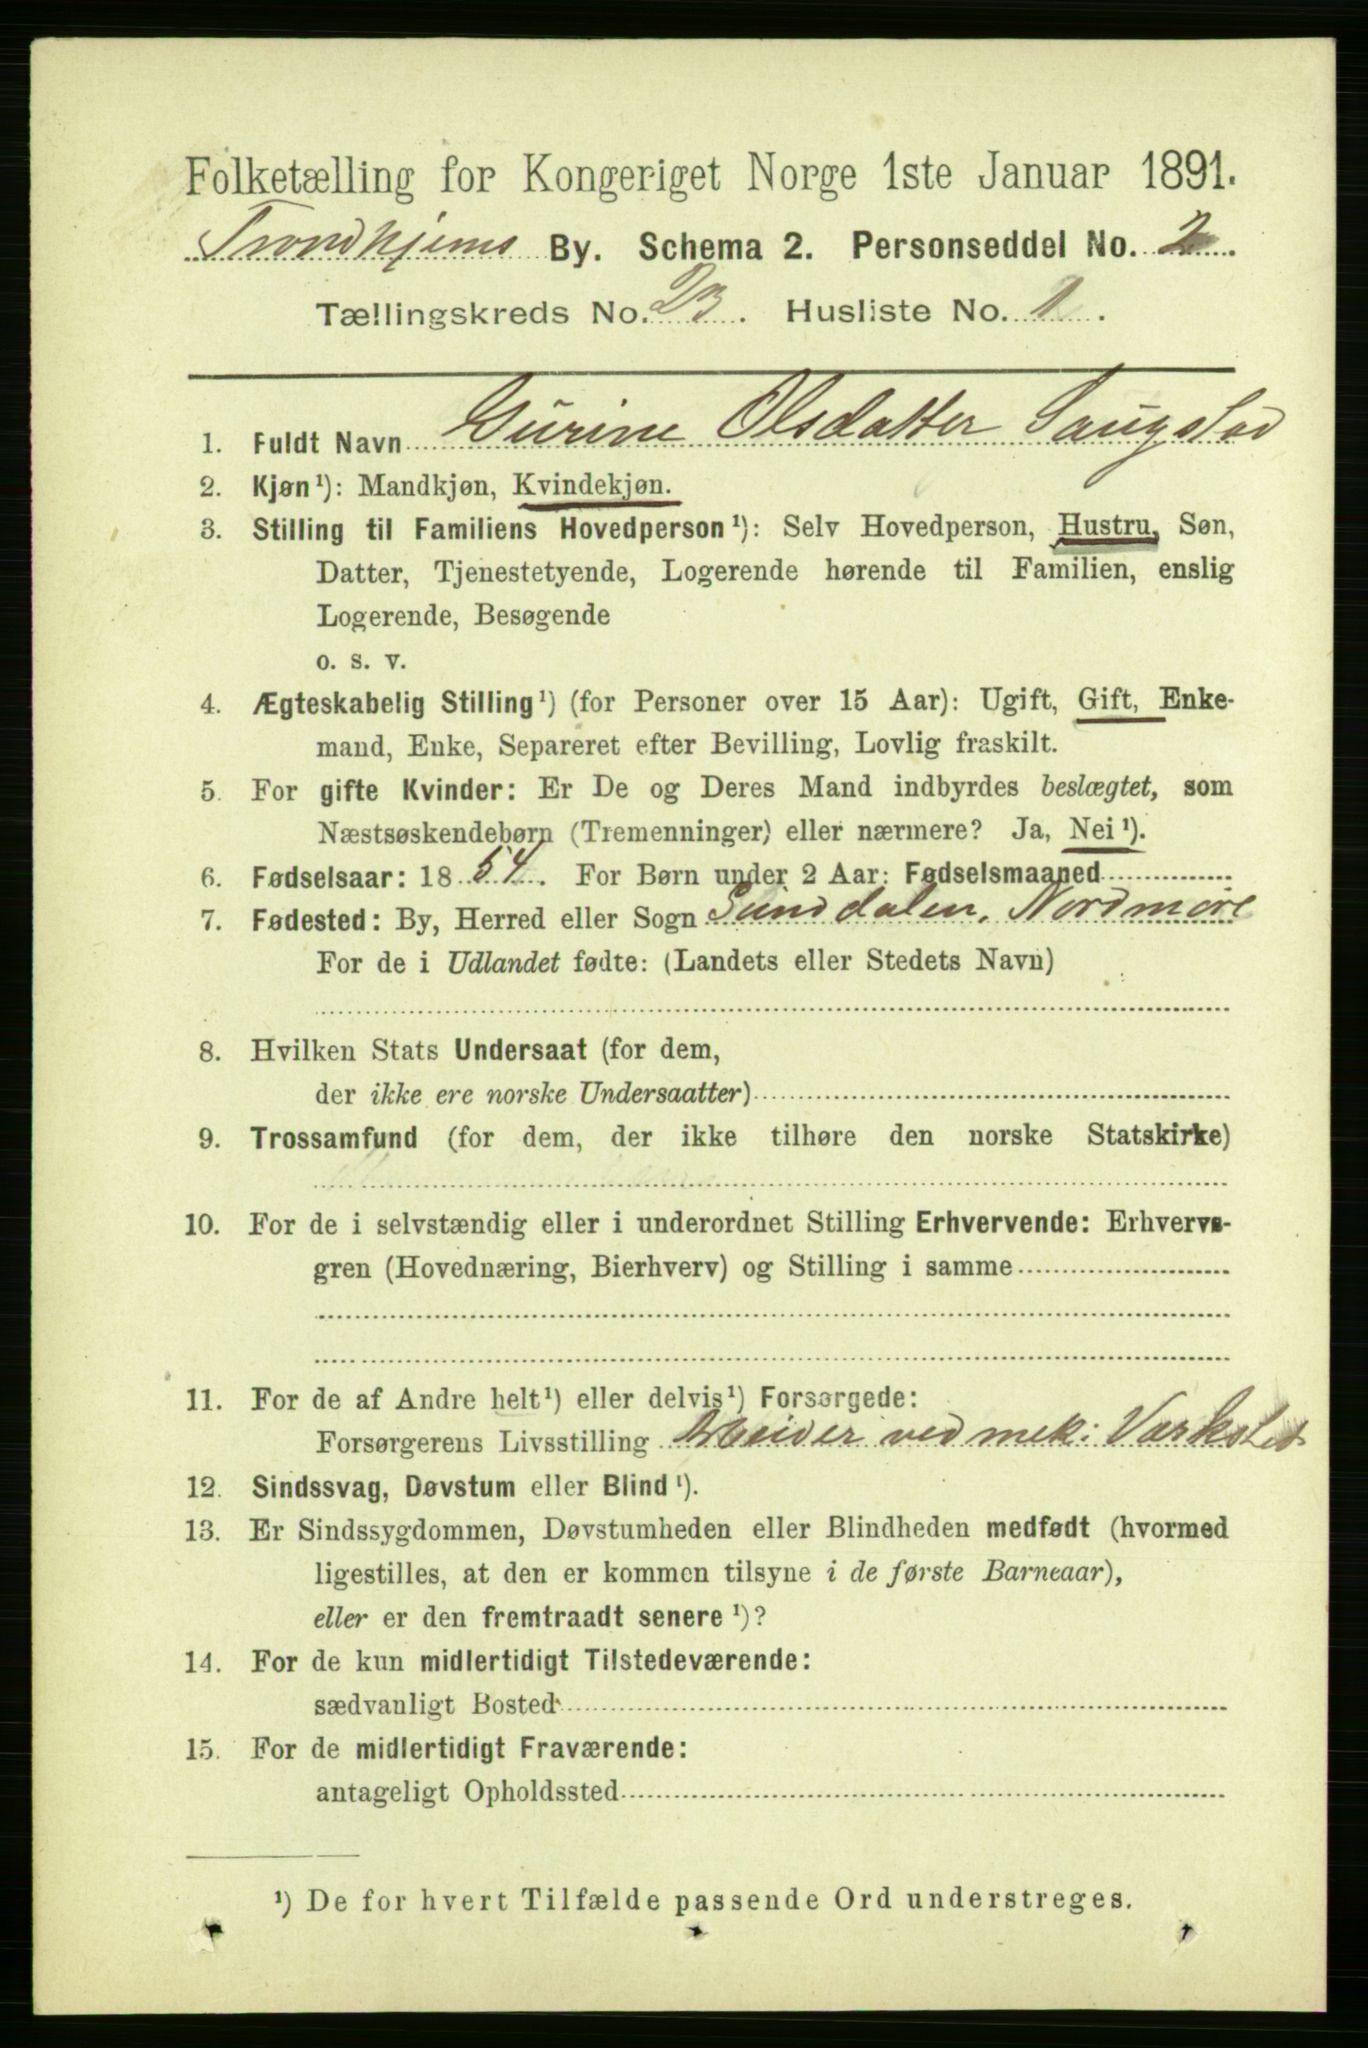 Folketælling for Kongeriget Norge 1ste Januar 1891.
Trondhjems By. Schema 2. Personseddel No. 2.
Tællingskreds No. 23. Husliste No. 1.
1. Fuldt Navn Gurine Olsdatter Saugstad
2. Kjøn¹): Mandkjøn, Kvindekjøn.
3. Stilling til Familiens Hovedperson¹): Selv Hovedperson, Hustru, Søn,
Datter, Tjenestetyende, Logerende hørende til Familien, enslig
Logerende, Besøgende
o. s. v.
4. Ægteskabelig Stilling¹) (for Personer over 15 Aar): Ugift, Gift, Enke-
mand, Enke, Separeret efter Bevilling, Lovlig fraskilt.
5. For gifte Kvinder: Er De og Deres Mand indbyrdes beslægtet, som
Næstsøskendebørn (Tremenninger) eller nærmere? Ja, Nei¹).
6. Fødselsaar: 1854. For Børn under 2 Aar: Fødselsmaaned
7. Fødested: By, Herred eller Sogn Sunddalen, Nordmøre
For de i Udlandet fødte: (Landets eller Stedets Navn)
8. Hvilken Stats Undersaat (for dem,
der ikke ere norske Undersaatter)
9. Trossamfund (for dem, der ikke tilhøre den norske Statskirke)
10. For de i selvstændig eller i underordnet Stilling Erhvervende: Erhvervs-
gren (Hovednæring, Bierhverv) og Stilling i samme
11. For de af Andre helt¹) eller delvis¹) Forsørgede:
Forsørgerens Livsstilling Arbeider ved mek: Værksted
12. Sindssvag, Døvstum eller Blind¹).
13. Er Sindssygdommen, Døvstumheden eller Blindheden medfødt (hvormed
ligestilles, at den er kommen tilsyne i de første Barneaar),
eller er den fremtraadt senere¹)?
14. For de kun midlertidigt Tilstedeværende:
sædvanligt Bosted
15. For de midlertidigt Fraværende:
antageligt Opholdssted
¹) De for hvert Tilfælde passende Ord understreges.